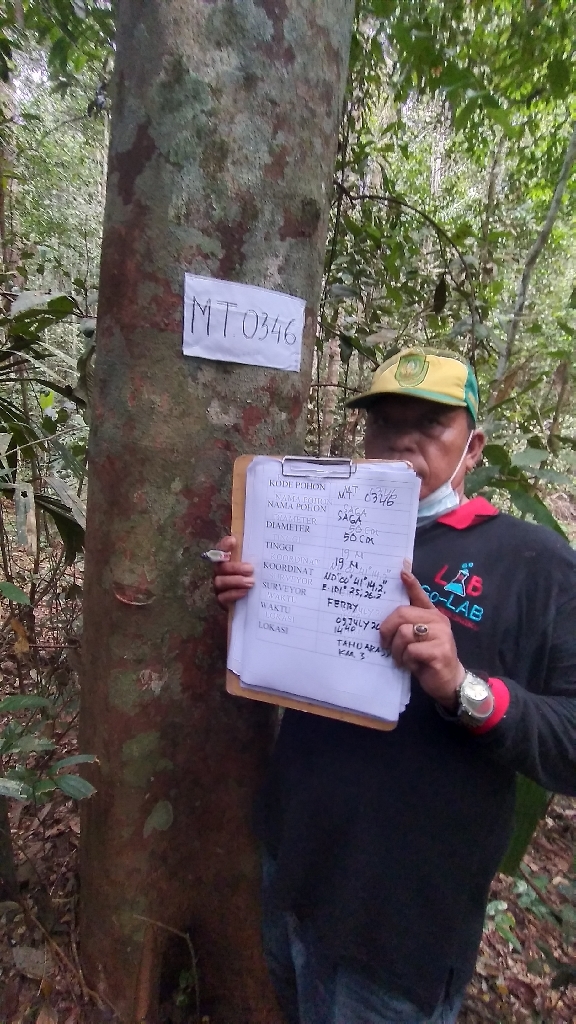 MT.0346
KODE POHON MT 0346
NAMA POHON SAGA
DIAMETER 50 cm
TINGGI 19 M
KOORDINAT N 0° 00' 41" 14,2"
E 101° 25, 26,2
SURVEYOR FERRY
WAKTU 09 JULY 20
14 40
LOKASI TAHURA
KAR 3
LAB
CO-LAB